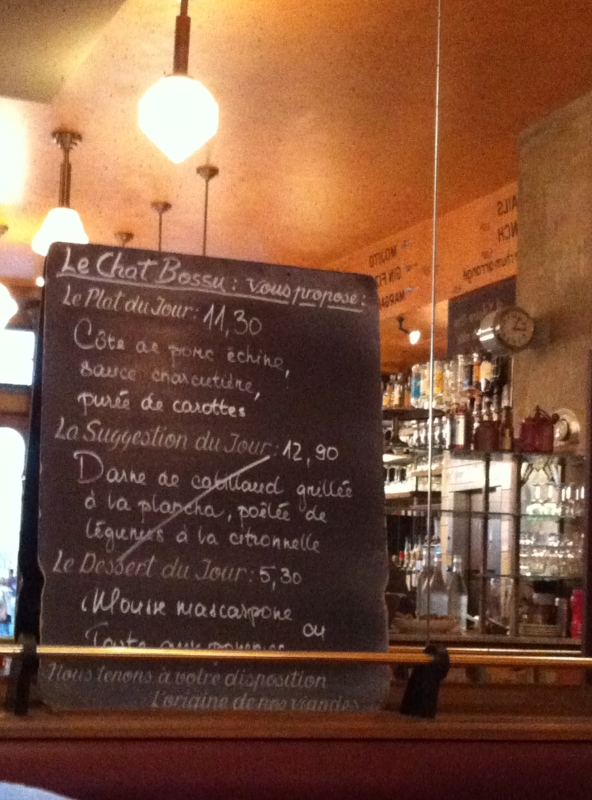 Le Chat Bossu : vous propose :
Le Plat du Jour : 11,30
Côte de porc échine,
sauce charcutière,
purée de carottes
La Suggestion du Jour : 12,90
Darne de cabillaud grillée
à la plancha, poêlée de
légumes à la citronnelle
Le Dessert du Jour : 5,30
Mousse mascarpone
ou
Nous tenons à votre disposition
L'origine de nos viandes
MOJITO
GIN